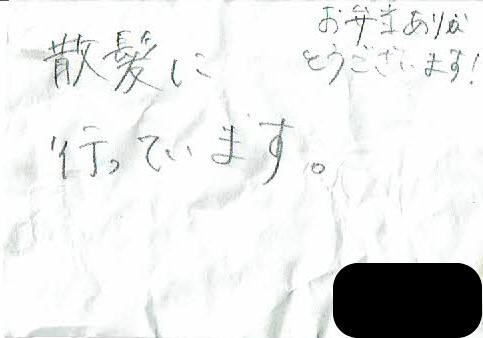 お弁当ありが
とうございます!
散髪に
行っています。